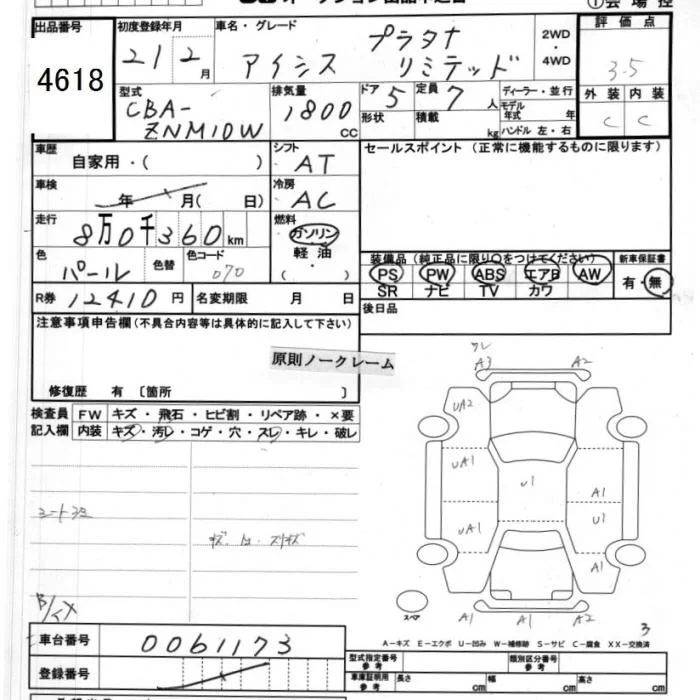 出品番号 4618
初度登録年月 21年 2月
車名・グレード アイシス プラタナ リミテッド
2WD・4WD
評価点 3.5
外装 内装
C C
型式 CBA-ZNM10W
排気量 1800 cc
ドア 5 定員 7人
形状 積載 kg
ディーラー・並行
モデル年式 年
ハンドル 左・右
車歴 自家用・( )
シフト AT
セールスポイント(正常に機能するものに限ります)
車検 年 月( 日)
冷房 AC
走行 8万0千360km
燃料 ガソリン・軽油・( )
色 パール 色替 色コード 070
装備品(純正品に限り○をつけてください) 新車保証書
PS PW ABS エアB AW 有・無
SR ナビ TV カワ
R券 12410円 名変期限 月 日
後日品
注意事項申告欄(不具合内容等は具体的に記入して下さい)
原則ノークレーム
修復歴 有 〔箇所 〕
検査員記入欄 FW キズ・飛石・ヒビ割・リペア跡・×要
内装 キズ・汚レ・コゲ・穴・スレ・キレ・破レ
A3 A2
UA2
UA1 U1 A1
UA1 U1
A1
スペア A1 A1 A2
3
A-キズ E-エクボ U-凹み W-補修跡 S-サビ C-腐食 XX-交換済
車台番号 0061173
登録番号
型式指定番号参考 類別区分番号参考
車庫証明用参考 長さ cm 幅 cm 高さ cm